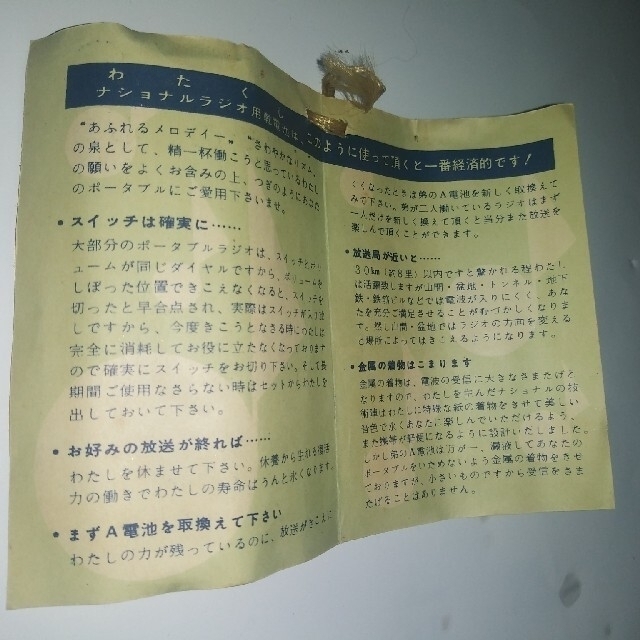 わたくし
ナショナルラジオ用乾電池は、このように使って頂くと一番経済的です!
"あふれるメロデイー"、"さわやかなリズム"
の泉として、精一杯働こうと思っているわたし
の願いをよくお含みの上、つぎのようにあなた
のポータブルにご愛用下さいませ。
• スイッチは確実に……
大部分のポータブルラジオは、スイッチとボリ
ュームが同じダイヤルですから、ボリュームを
しぼった位置できこえなくなると、スイッチを
切ったと早合点され、実際はスイッチが入り放
しですから、今度きこうとなさる時にわたしは
完全に消耗してお役に立たなくなっております
ので確実にスイッチをお切り下さい。そして長
期間ご使用なさらない時はセットからわたしを
出しておいて下さい。
• お好みの放送が終れば……
わたしを休ませて下さい。休養から生れる復活
力の働きでわたしの寿命はうんと永くなります。
• まずA電池を取換えて下さい
わたしの力が残っているのに、放送がきこえに
くくなったときは弟のA電池を新しく取換えて
みて下さい。弟が二人働いているラジオはまず
一人だけを新しく換えて頂くと当分また放送を
楽しんで頂くことができます。
• 放送局が近いと……
30km(約8里)以内ですと驚かれる程わたし
は活躍致しますが山間・盆地・トンネル・地下
鉄・鉄筋ビルなどでは電波が入りにくく、あな
たを充分ご満足させることがむづかしくなりま
す。然し山間・盆地ではラジオの方向を変える
と場所によってはきこえるようになります。
• 金属の着物はこまります
金属の着物は、電波の受信に大きなさまたげと
なりますので、わたしを生んだナショナルの技
術陣はわたしに特殊な紙の着物をきせて美しい
音色で永くあなたに楽しんでいただけるよう、
また携帯が軽便になるように設計いたしました。
しかし弟のA電池は万が一、漏液してあなたの
ポータブルをいためないよう金属の着物をきせ
ておりますが、小さいものですから受信をさま
たげることはありません。